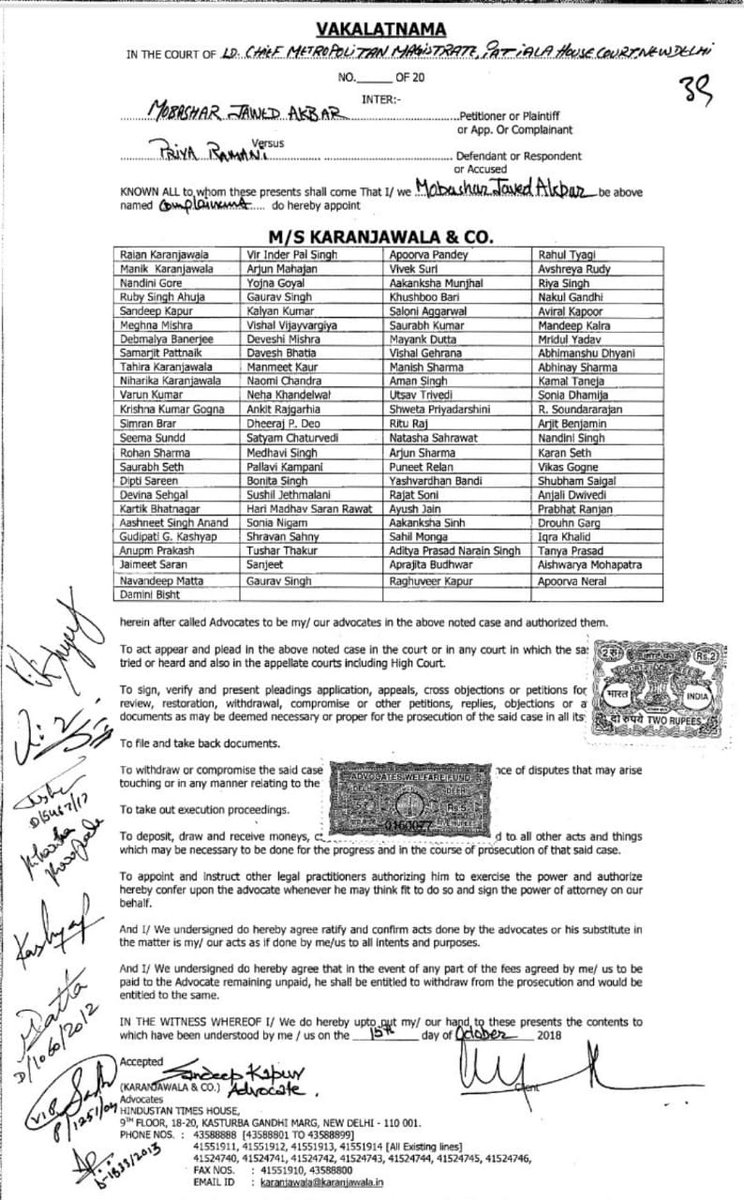 VAKALATNAMA
IN THE COURT OF LD. CHIEF METROPOLITAN MAGISTRATE, PATIALA HOUSE COURT NEW DELHI
NO.______ OF 20
39
INTER:-
MOBASHAR JAWED AKBAR Petitioner or Plaintiff
or App. Or Complainant
Versus
PRIYA RAMANI Defendant or Respondent
or Accused
KNOWN ALL to whom these presents shall come That I/ we Mobashar Jawed Akbar be above
named Complainant do hereby appoint
M/S KARANJAWALA & CO.
Raian Karanjawala Vir Inder Pal Singh Apoorva Pandey Rahul Tyagi
Manik Karanjawala Arjun Mahajan Vivek Suri Avshreya Rudy
Nandini Gore Yojna Goyal Aakanksha Munjhal Riya Singh
Ruby Singh Ahuja Gaurav Singh Khushboo Bari Nakul Gandhi
Sandeep Kapur Kalyan Kumar Saloni Aggarwal Aviral Kapoor
Meghna Mishra Vishal Vijayvargiya Saurabh Kumar Mandeep Kalra
Debmalya Banerjee Deveshi Mishra Mayank Dutta Mridul Yadav
Samarjit Pattnaik Davesh Bhatia Vishal Gehrana Abhimanshu Dhyani
Tahira Karanjawala Manmeet Kaur Manish Sharma Abhinay Sharma
Niharika Karanjawala Naomi Chandra Aman Singh Kamal Taneja
Varun Kumar Neha Khandelwal Utsav Trivedi Sonia Dhamija
Krishna Kumar Gogna Ankit Rajgarhia Shweta Priyadarshini R. Soundararajan
Simran Brar Dheeraj P. Deo Ritu Raj Arjit Benjamin
Seema Sundd Satyam Chaturvedi Natasha Sahrawat Nandini Singh
Rohan Sharma Medhavi Singh Arjun Sharma Karan Seth
Saurabh Seth Pallavi Kampani Puneet Relan Vikas Gogne
Dipti Sareen Bonita Singh Yashvardhan Bandi Shubham Saigal
Devina Sehgal Sushil Jethmalani Rajat Soni Anjali Dwivedi
Kartik Bhatnagar Hari Madhav Saran Rawat Ayush Jain Prabhat Ranjan
Aashneet Singh Anand Sonia Nigam Aakanksha Sinh Drouhn Garg
Gudipati G. Kashyap Shravan Sahny Sahil Monga Iqra Khalid
Anupm Prakash Tushar Thakur Aditya Prasad Narain Singh Tanya Prasad
Jaimeet Saran Sanjeet Aprajita Budhwar Aishwarya Mohapatra
Navandeep Matta Gaurav Singh Raghuveer Kapur Apoorva Neral
Damini Bisht
herein after called Advocates to be my/ our advocates in the above noted case and authorized them.
To act appear and plead in the above noted case in the court or in any court in which the sa
tried or heard and also in the appellate courts including High Court.
To sign, verify and present pleadings application, appeals, cross objections or petitions for
review, restoration, withdrawal, compromise or other petitions, replies, objections or a
documents as may be deemed necessary or proper for the prosecution of the said case in all its
Rs.2
भारत INDIA
दो रुपये TWO RUPEES
To file and take back documents.
To withdraw or compromise the said case nce of disputes that may arise
touching or in any manner relating to the
ADVOCATES WELFARE FUND
DELHI
Rs.5
0160077
To take out execution proceedings.
To deposit, draw and receive moneys, c d to all other acts and things
which may be necessary to be done for the progress and in the course of prosecution of that said case.
To appoint and instruct other legal practitioners authorizing him to exercise the power and authorize
hereby confer upon the advocate whenever he may think fit to do so and sign the power of attorney on our
behalf.
And I/ We undersigned do hereby agree ratify and confirm acts done by the advocates or his substitute in
the matter is my/ our acts as if done by me/us to all intents and purposes.
And I/ We undersigned do hereby agree that in the event of any part of the fees agreed by me/ us to be
paid to the Advocate remaining unpaid, he shall be entitled to withdraw from the prosecution and would be
entitled to the same.
IN THE WITNESS WHEREOF I/ We do hereby upto put my/ our hand to these presents the contents to
which have been understood by me / us on the 15th day of October 2018
D/5467/17
Niharika
Kashyap
D/1060/2012
D-1833/2013
Accepted
Sandeep Kapur
Advocate
Client
(KARANJAWALA & CO.)
Advocates
HINDUSTAN TIMES HOUSE,
9TH FLOOR, 18-20, KASTURBA GANDHI MARG, NEW DELHI - 110 001.
PHONE NOS. : 43588888 [43588801 TO 43588899]
41551911, 41551912, 41551913, 41551914 [All Existing lines]
41524740, 41524741, 41524742, 41524743, 41524744, 41524745, 41524746,
FAX NOS. : 41551910, 43588800
EMAIL ID : karanjawala@karanjawala.in